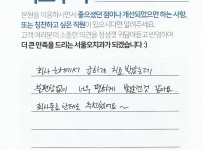 본원을 이용하시면서 좋으셨던 점이나 개선되었으면 하는 사항,
또는 칭찬하고 싶은 직원이 있으시다면 알려주세요.
고객 여러분의 소중한 의견을 정성껏 귀담아듣고 반영하여
더 큰 만족을 드리는 서울오치과가 되겠습니다 :)
회사 근처에서 급하게 치료 받았는데
불편함없이 너무 편하게 받았던것 같아요.
회사동료 한테도 추천했어요 ~